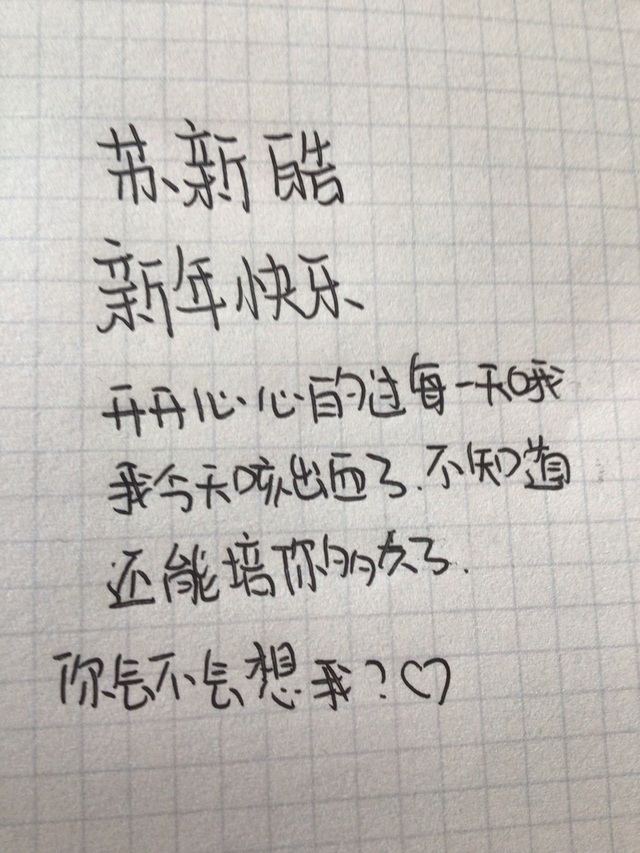 苏新皓
新年快乐
开开心心的过每一天哦
我今天咳出血了.不知道
还能培你多久了.
你会不会想我？♡